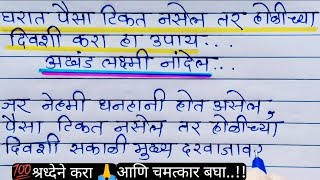 घरात पैसा टिकत नसेल तर होळीच्या
दिवशी करा हा उपाय...
अखंड लक्ष्मी नांदेल...
जर नेहमी धनहानी होत असेल,
पैसा टिकत नसेल तर होळीच्या
दिवशी सकाळी मुख्य दरवाजाव
💯श्रध्देने करा 🙏आणि चमत्कार बघा..!!